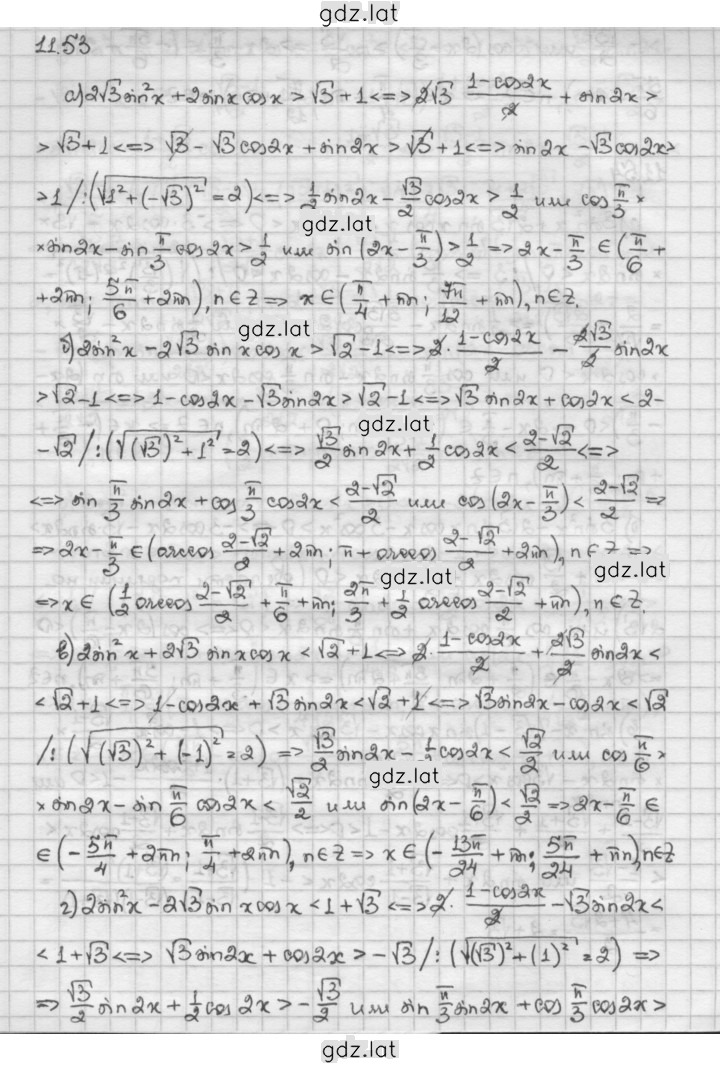 gdz.lat
11.53
а) 2√3 sin²x + 2 sin x cos x > √3 + 1 <=> 2√3 (1-cos2x)/2 + sin2x >
> √3 + 1 <=> √3 - √3 cos2x + sin2x > √3 + 1 <=> sin2x - √3 cos2x >
> 1 /:(√(1² + (-√3)²) = 2) <=> 1/2 sin2x - √3/2 cos2x > 1/2 или cos π/3 ×
gdz.lat
× sin2x - sin π/3 cos2x > 1/2 или sin (2x - π/3) > 1/2 => 2x - π/3 ∈ (π/6 +
+ 2πn; 5π/6 + 2πn), n ∈ Z => x ∈ (π/4 + πn; 7π/12 + πn), n ∈ Z.
gdz.lat
б) 2sin²x - 2√3 sin x cos x > √2 - 1 <=> 2· (1-cos2x)/2 - 2√3/2 sin2x
> √2 - 1 <=> 1 - cos2x - √3 sin2x > √2 - 1 <=> √3 sin2x + cos2x < 2 -
gdz.lat
- √2 /:(√((√3)² + 1²) = 2) <=> √3/2 sin 2x + 1/2 cos2x < (2-√2)/2 <=>
<=> sin π/3 sin2x + cos π/3 cos2x < (2-√2)/2 или cos (2x - π/3) < (2-√2)/2 =>
=> 2x - π/3 ∈ (arccos (2-√2)/2 + 2πn; π + arccos (2-√2)/2 + 2πn), n ∈ Z =>
gdz.lat gdz.lat
=> x ∈ (1/2 arccos (2-√2)/2 + π/6 + πn; 2π/3 + 1/2 arccos (2-√2)/2 + πn), n ∈ Z.
в) 2sin²x + 2√3 sin x cos x < √2 + 1 <=> 2· (1-cos2x)/2 + 2√3/2 sin2x <
< √2 + 1 <=> 1 - cos2x + √3 sin2x < √2 + 1 <=> √3 sin2x - cos2x < √2
/:(√((√3)² + (-1)²) = 2) => √3/2 sin2x - 1/2 cos2x < √2/2 или cos π/6 ×
gdz.lat
× sin2x - sin π/6 cos2x < √2/2 или sin(2x - π/6) < √2/2 => 2x - π/6 ∈
∈ (- 5π/4 + 2πn; π/4 + 2πn), n ∈ Z => x ∈ (- 13π/24 + πn; 5π/24 + πn), n ∈ Z
г) 2sin²x - 2√3 sin x cos x < 1 + √3 <=> 2· (1-cos2x)/2 - √3 sin2x <
< 1 + √3 <=> √3 sin2x + cos2x > - √3 /:(√((√3)² + (1)²) = 2) =>
=> √3/2 sin2x + 1/2 cos 2x > - √3/2 или sin π/3 sin2x + cos π/3 cos2x >
gdz.lat